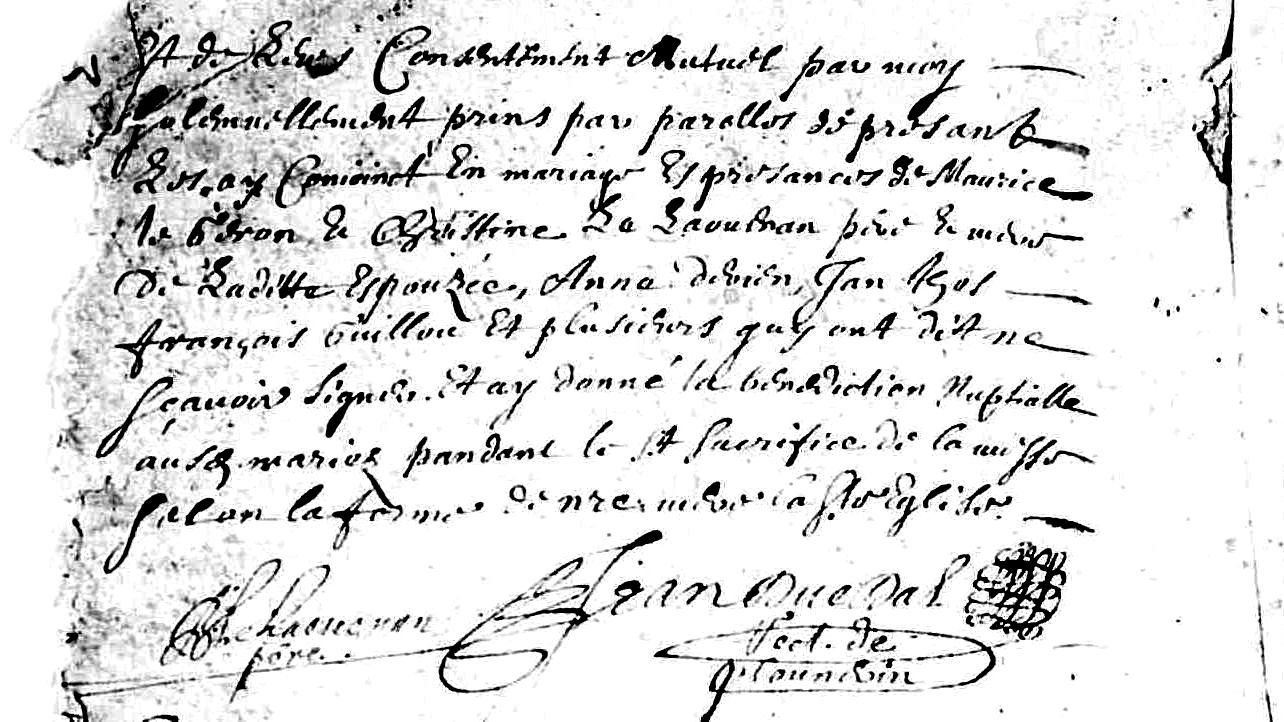 Et de leurs Consentement Mutuel par moy
solemnellement prins par parolles de presant
Les ay Conioinct En mariage Es presances de Maurice
le & Christine Le Laouenan père & mere
De Laditte Espouzée, Anne Jan
françois Guillou Et plusieurs quy ont dist ne
sçavoir Signer. Et ay donné la benediction Nuptialle
ausd. mariez pandant le st sacrifice de la messe
selon la forme de nre mere la ste Eglise.
père
Jean Duedal
Rect. de